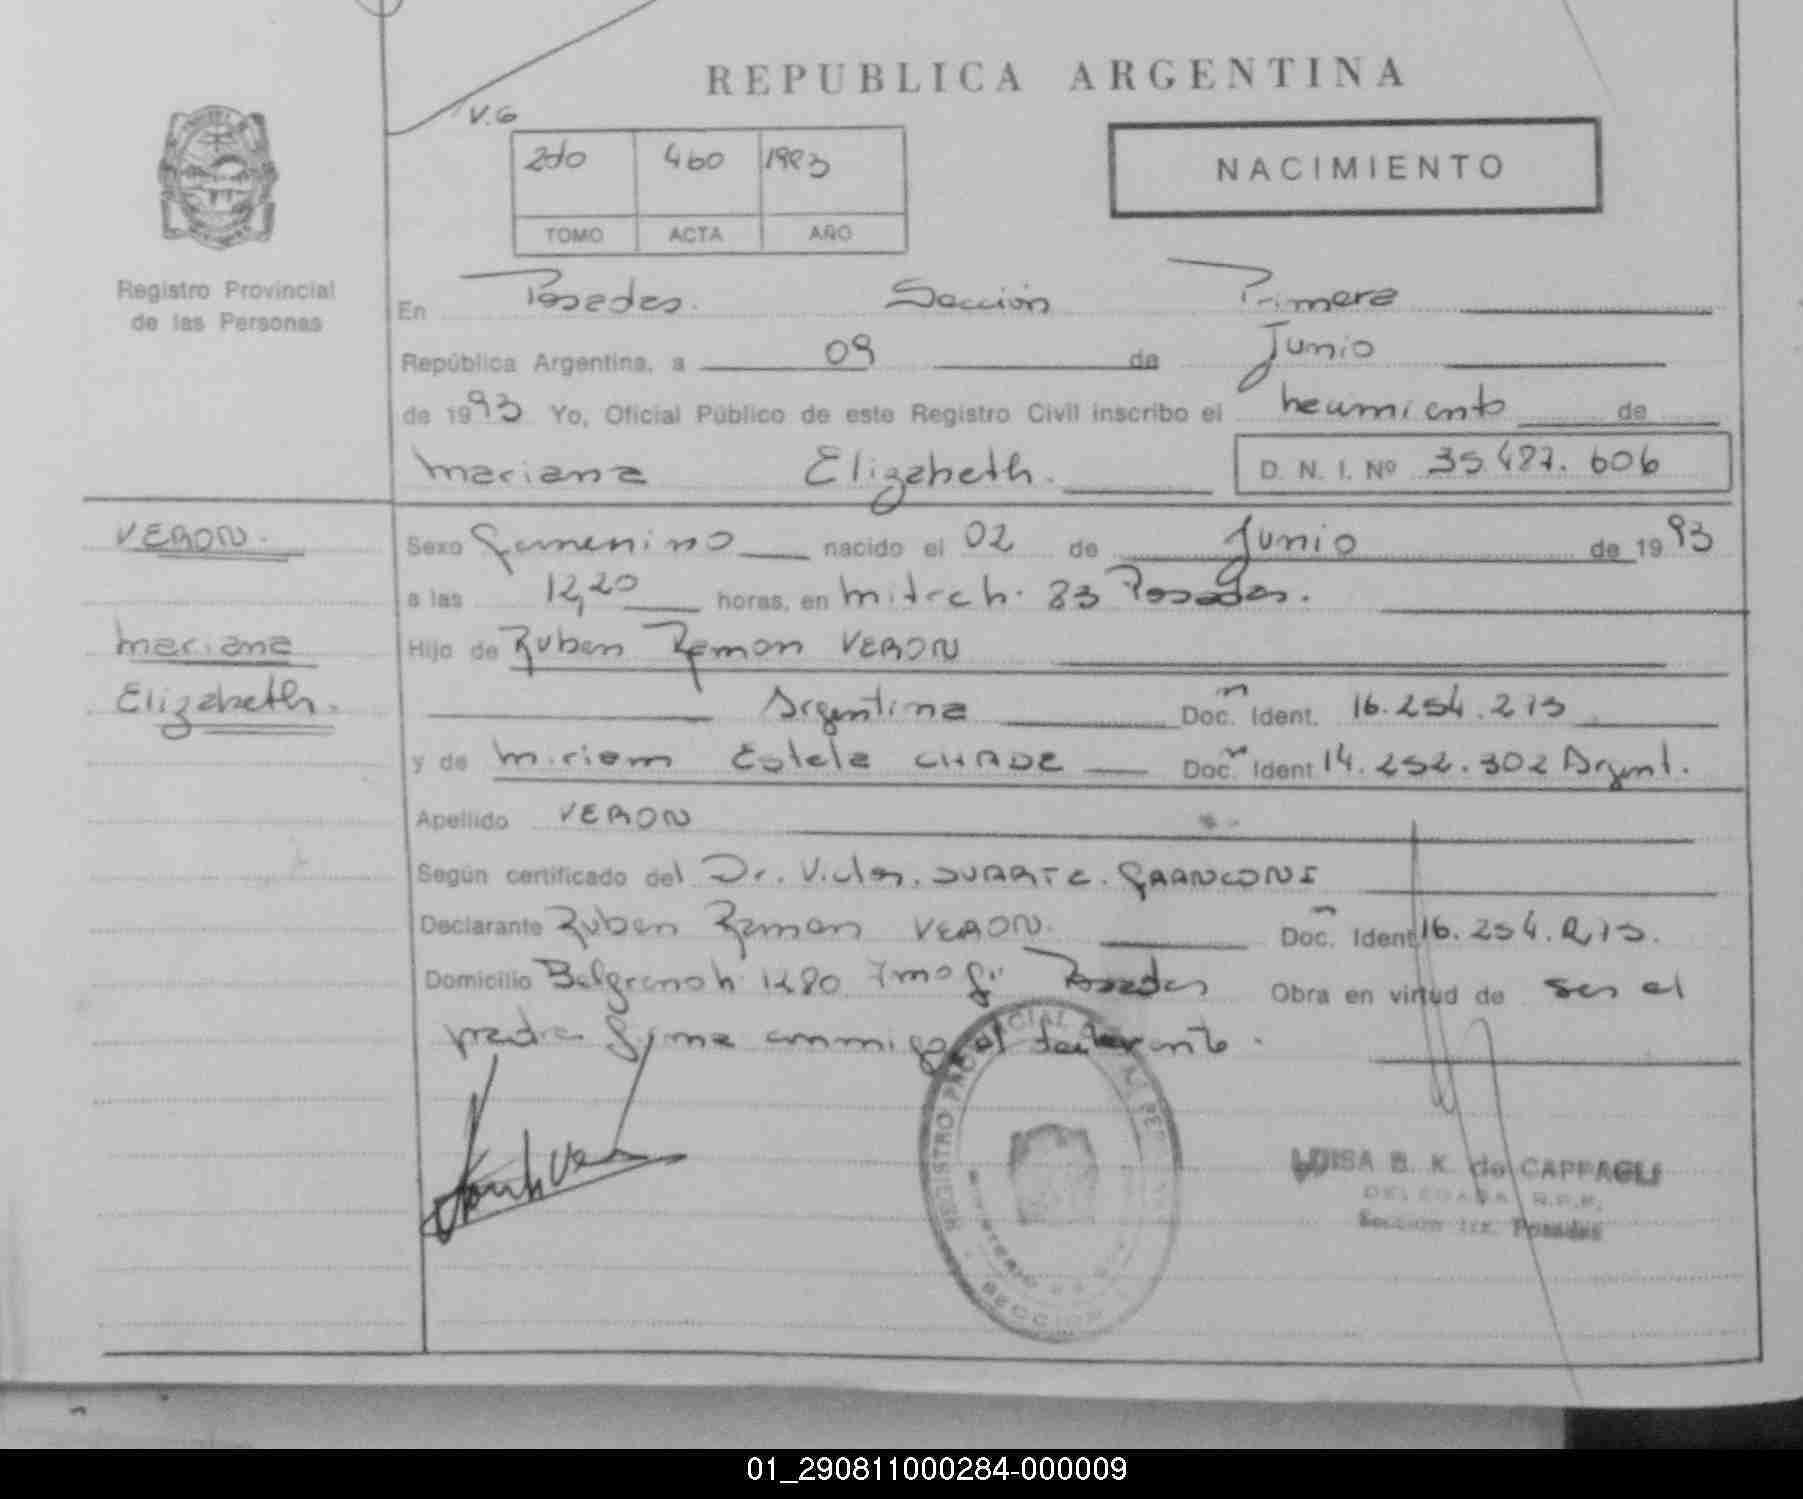 REPUBLICA ARGENTINA
V.G
2do 460 1993
TOMO ACTA AÑO
NACIMIENTO
Registro Provincial
de las Personas
En Posadas. Sección Primera
República Argentina, a 09 de Junio
de 1993 Yo, Oficial Público de este Registro Civil inscribo el de
Mariana Elizabeth.
D. N. I. Nº 35.487.606
VERON.
Mariana
Elizabeth.
Sexo femenino nacido el 02 de Junio de 1993
a las 12,20 horas, en Mitre h. 83 Posadas.
Hijo de Ruben Ramon VERON
Argentina Doc. Ident. 16.254.215
y de Miriam Estela CHADE Doc. Ident 14.252.302 Argent.
Apellido VERON
Según certificado del Dr. Victor. DUARTE.
Declarante Ruben Ramon VERON. Doc. Ident 16.254.215.
Domicilio Belgrano h 1280 7mo Posadas Obra en virtud de ser el
padre firma conmigo el declarante.
REGISTRO PROVINCIAL DE LAS PERSONAS
MINISTERIO
SECCION
LUISA B. K. de CAPPAGLI
DELEGADA R.P.P.
Sección 1ra. Posadas
01_290811000284-000009